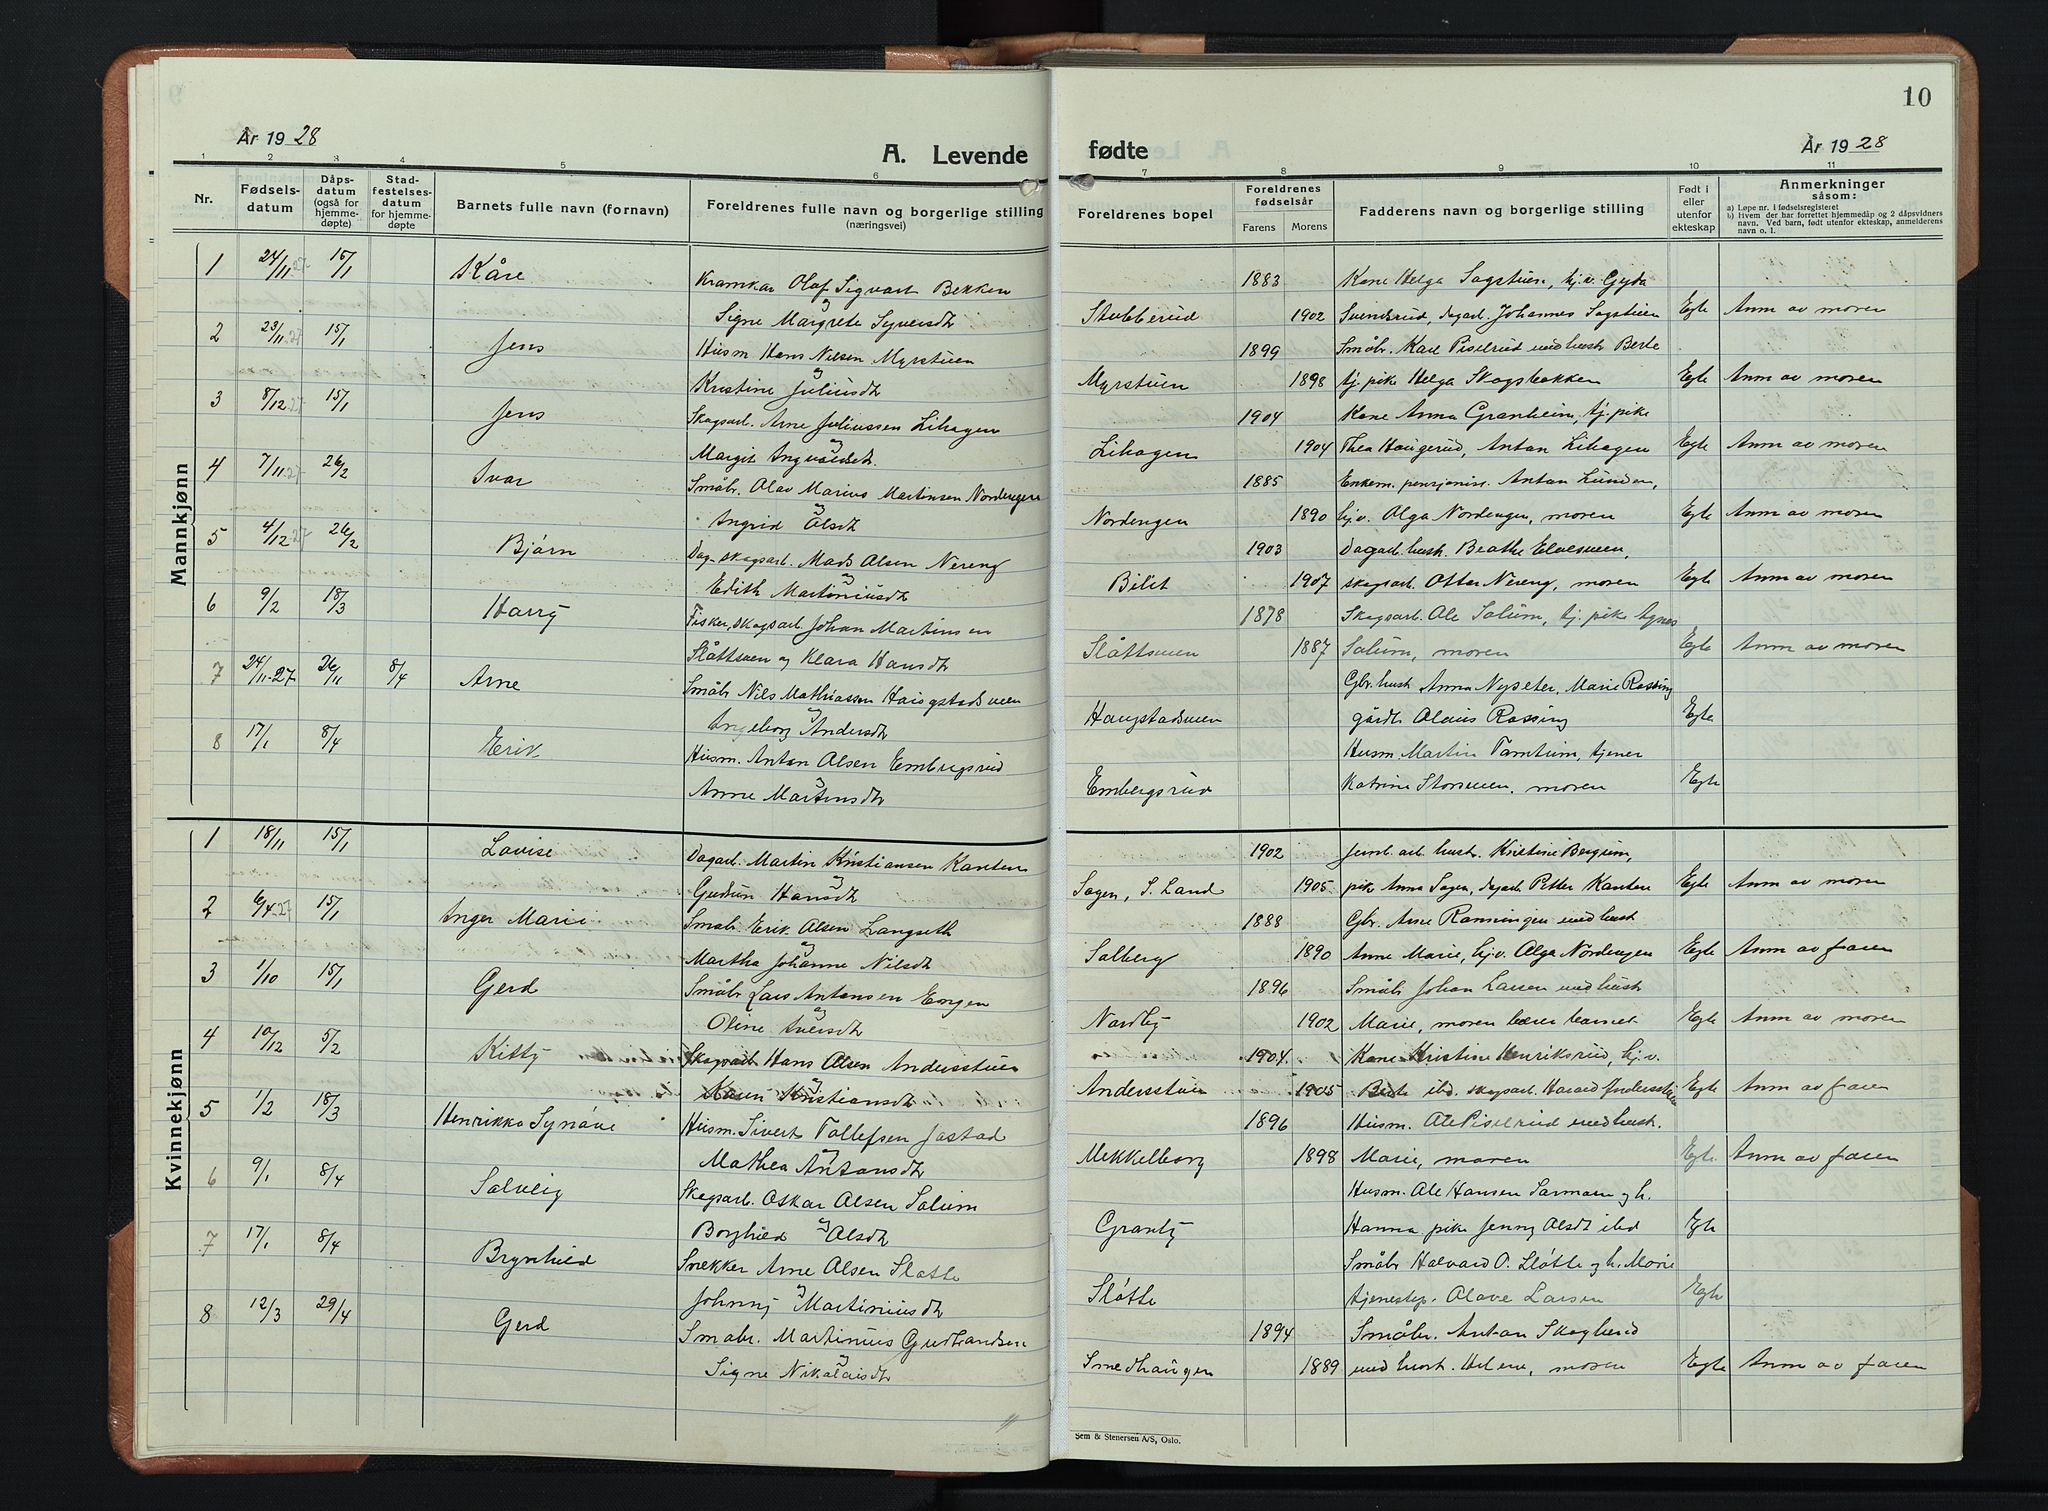 10
År 1928
A. Levende
fødte
År 1928
1 2 3 4 5 6 7 8 9 10 11
Nr.
Fødsels-
datum
Dåps-
datum
(også for
hjemme-
døpte)
Stad-
festelses-
datum
for hjemme-
døpte
Barnets fulle navn (fornavn)
Foreldrenes fulle navn og borgerlige stilling
(næringsvei)
Foreldrenes bopel
Foreldrenes
fødselsår
Farens Morens
Fadderens navn og borgerlige stilling
Født i
eller
utenfor
ekteskap
Anmerkninger
såsom:
a) Løpe nr. i fødselsregisteret
b) Hvem der har forrettet hjemmedåp og 2 dåpsvidners
navn. Ved barn, født utenfor ekteskap, anmelderens
navn o. l.
Mannkjønn
1 24/11 27 15/1 Kåre Kramkar Olaf Sigvart Bekken 1883 Kone Helga Sagstuen, hj.v. Gyda
og Signe Margrete Syversdt Stubberud 1902 Svendsrud, dagarb. Johannes Sagstuen Egte Anm av moren
2 23/11 27 15/1 Jens Husm. Hans Nilsen Myrstuen 1899 Småbr. Karl Piselrud med hustr. Berte
og Kristine Juliusdt Myrstuen 1898 tj. pike Helga Skogsbakken Egte Anm av moren
3 8/12 27 15/1 Jens Skogsarb. Arne Juliussen Lihagen 1904 Kone Anna Granheim, tj. pike
og Margit Ingvaldsdt. Lihagen 1904 Thea Haugerud, Anton Lihagen Egte Anm av moren
4 7/11 27 26/2 Ivar Småbr. Olav Marius Martinsen Nordengen 1885 Enkem. pensjonist. Anton Lunden,
og Ingrid Olsdt Nordengen 1890 hj.v. Olga Nordengen, moren Egte Anm av moren
5 4/12 27 26/2 Bjørn Dag. skogsarb. Mads Olsen Nereng 1903 Dagarb. hustr. Beathe Elvesveen,
og Edith Martiniusdt Bilit 1907 skogsarb. Ottar Nereng, moren Egte Anm av moren
6 9/2 18/3 Harry Fisker, skogsarb. Johan Martinsen 1878 Skogsarb. Ole Solum, tj. pike Agnes
Slåttsveen og Klara Hansdt Slåttsveen 1887 Solum, moren Egte Anm av moren
7 24/11-27 26/11 8/4 Arne Småbr Nils Mathiassen Haugstadsveen Gbr. hust Anna Nyseter, Marie Rossing
og Ingeborg Andersdt Haugstadsveen gårdb. Olaus Rossing Egte
8 17/1 8/4 Erik Husm. Anton Olsen Embregsrud Husm. Martin Tomtum, tjener
og Anne Martinsdt Embergsrud Katrine Storsveen, moren Egte
Kvinnekjønn
1 18/11 15/1 Lovise Dagarb. Martin Kristiansen Kanten 1902 Jernb. arb. hustr. Kristine Bergum,
og Gudrun Hansdt Sagen, S. Land 1905 pike Anna Sagen, dagarb Petter Kanten Egte Anm av moren
2 6/4 27 15/1 Inger Marie Småbr. Erik Olsen Langseth 1888 Gbr. Arne Ranningen med hust
og Martha Johanne Nilsdt Solberg 1890 Anne Marie, hj.v. Olga Nordengen Egte Anm av faren
3 1/10 15/1 Gerd Småbr Lars Antonsen Engen 1896 Småbr Johan Larsen med hust
og Oline Iversdt Nordby 1902 Marie, moren bærer barnet Egte Anm av moren
4 10/12 5/2 Kitty Skogsarb Hans Olsen Andersstuen 1904 Kone Kristine Henriksrud, hj.v.
og Karen Kristiansdt Andersstuen 1905 Berte ibd. skogsarb. Harald Andersstuen Egte Anm av faren
5 1/2 18/3 Henrikka Synøve Husm. Sivert Tollefsen Jøstad 1896 Husm. Ole Piselrud med hust.
og Mathea Antonsdt Mekkelborg 1898 Marie, moren Egte. Anm av faren
6 9/1 8/4 Solveig Skogsarb. Oskar Olsen Solum Husm. Ole Hansen Sormoen og h.
og Borghild Olsdt Granly Hanna pike Jenny Olsdt ibd Egte
7 17/1 8/4 Brynhild Snekker Arne Olsen Slåtte Småbr Halvard O. Sløtte og h. Marie
og Johnny Martiniusdt Sløtte tjenestep. Olave Larsen Egte
8 12/3 29/4 Gerd Småbr. Martinius Gudbrandsen 1894 Småbr. Anton Skoglund
og Signe Nikolaisdt Smedhaugen 1889 med hust. Helene, moren Egte Anm av faren
Sem & Stenersen A/S, Oslo.